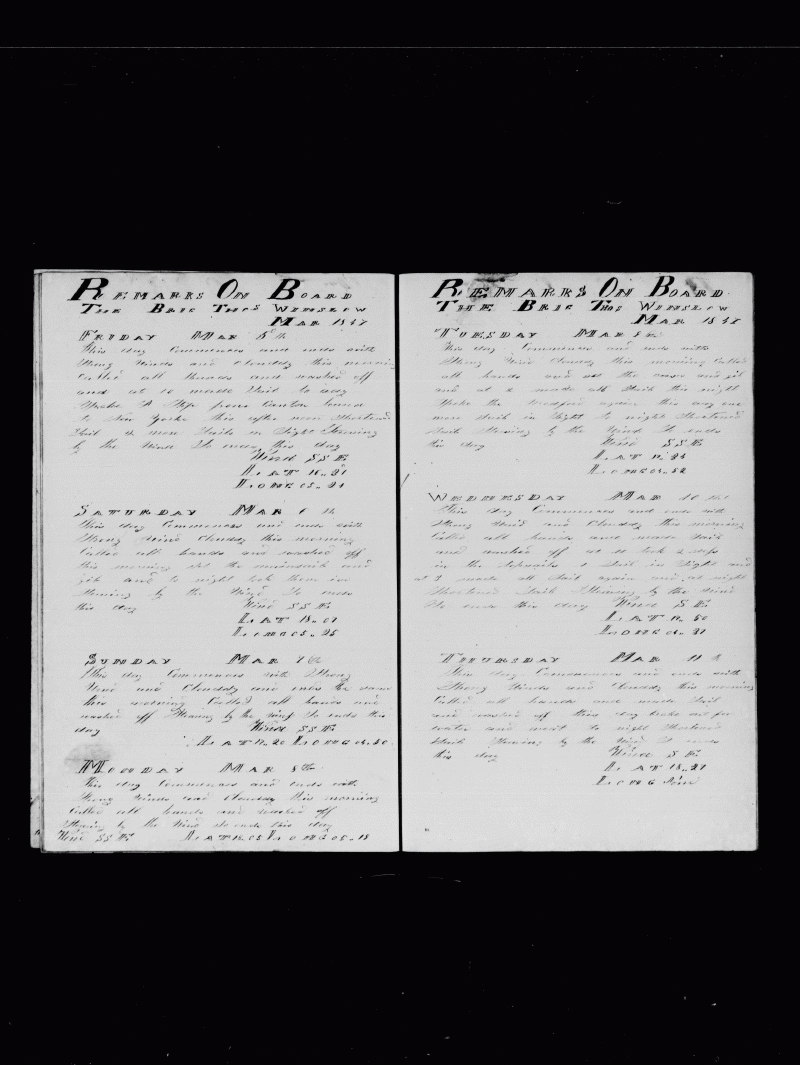 REMARKS ON BOARD
THE BRIG THOS WINSLOW
MAR 1847
FRIDAY MAR 5th
This day Commences and ends with
Strong Winds and Cloudy this morning
Called all hands and washed off
and at 10 made Sail to
Spoke A Ship from Canton bound
to New Yorke this after noon Shortened
Sail 2 more Sails in Sight Steering
by the Wind So ends this day
Wind SSE
LAT 16..21
LONG 05..21
SATURDAY MAR 6 th
This day Commences and ends with
Strong Wind Cloudy this morning
Called all hands and washed off
this morning set the mainsail and
jib and to night took them in
Steering by the Wind So ends
this day Wind SSE
LAT 18..01
LONG 05..25
SUNDAY MAR 7th
This day Commences with Strong
Wind and Cloudy and ends the same
this morning Called all hands and
washed off Steering by the Wind So ends this
day Wind SSE
LAT 17..20 LONG 04..50
MONDAY MAR 8th
This day Commences and ends with
Strong Winds and Cloudy this morning
Called all hands and washed off
Steering by the Wind So ends this day
Wind SSE LAT 18..05 LONG 05..18
REMARKS ON BOARD
THE BRIG THOS WINSLOW
MAR 1847
TUESDAY MAR 9th
This day Commences and ends with
Strong Wind Cloudy this morning Called
all hands and set the and jib
and at 2 made all Sail this night
Spoke the again this day one
more Sail in Sight to night Shortened
Sail Steering by the Wind So ends
this day Wind SSE
LAT 17..23
LONG 04..52
WEDNESDAY MAR 10 th
This day Commences and ends with
Strong Wind and Cloudy this morning
Called all hands and made Sail
and washed off at 11 took 2 reefs
in the topsails 1 Sail in Sight and
at 3 made all Sail again and at night
Shortened Sail Steering by the Wind
So ends this day Wind SE
LAT 50
LONG 04..21
THURSDAY MAR 11 th
This day Commences and ends with
Strong Winds and Cloudy this morning
Called all hands and made Sail
and washed off this day broke out for
water and meat to night Shortened
Sail Steering by the Wind So ends
this day Wind SE
LAT 18..27
LONG